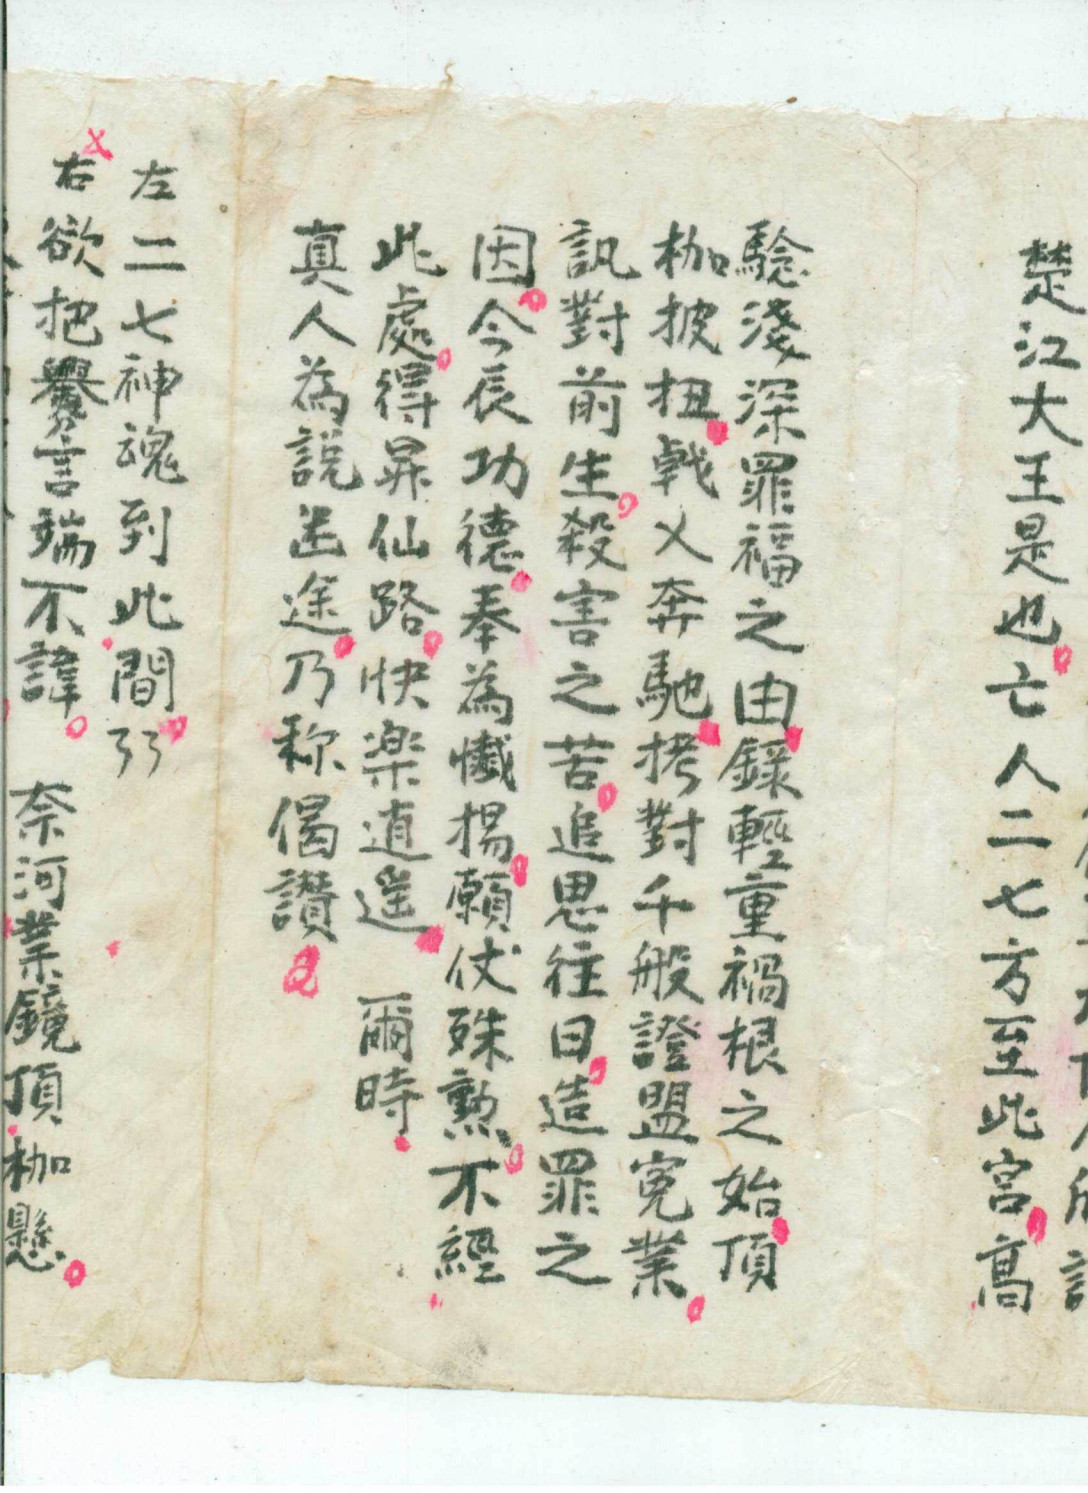 楚江大王是也亡人二七方至此宮高
驗淺深罪福之由録輕重禍根之始頂
枷披扭戟乂奔馳拷對千般證盟寃業
訊對前生殺害之苦追思往日造罪之
因今辰功德奉為懺揚願仗殊勲不經
此處得昇仙路快楽逍遥　爾時
真人為説幽途乃称偈讃
左二七神魂到此間
右欲把釁言端不諱　奈河業鏡頂枷懸